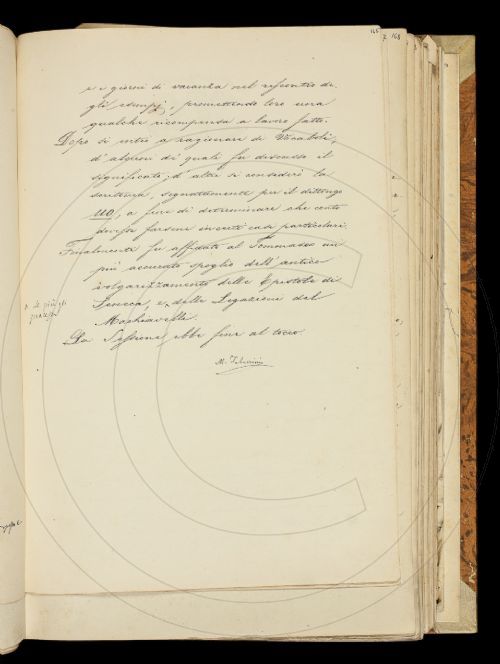 168
e i giorni di vacanza nel riscontro de-
gli esempj, promettendo loro una
qualche ricompensa a lavoro fatto.
Dopo si entrò a ragionare di Vocaboli,
d'alcuni di quali fu discusso il
significato, d'altri si considerò la
scrittura, segnatamente per il dittongo
uo, a fine di determinare che conto
debba farsene in certi casi particolari.
Finalmente fu affidato al Tommaseo un
più accurato spoglio dell'antico
volgarizzamento delle Epistole di
Seneca, e delle Legazioni del
Machiavelli.
La Sessione ebbe fine al tocco.